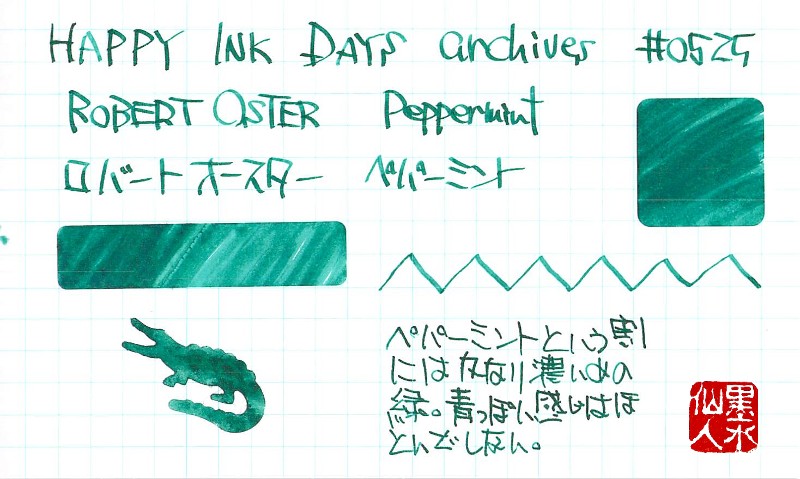 HAPPY INK DAYS archives #0525
ROBERT OSTER Peppermint
ロバート オースター ペパーミント
ペパーミントという割
にはかなり濃いめの
緑。青っぽい感じはほ
とんどしない。
墨水
仙人